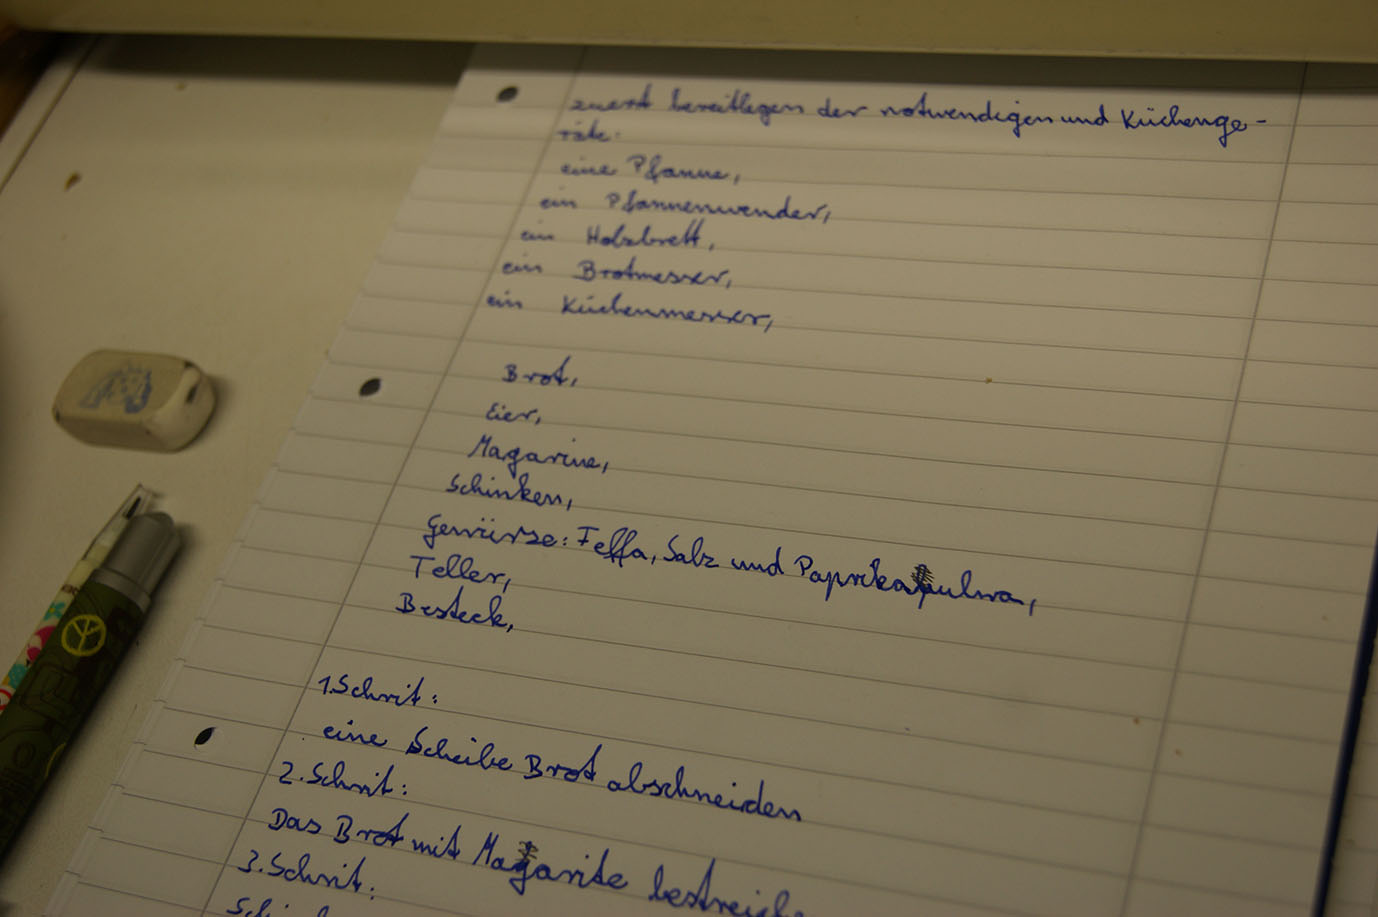 zuerst bereitlegen der notwendigen und Küchenge-
räte:
eine Pfanne,
ein Pfannenwender,
ein Holzbrett,
ein Brotmesser,
ein Küchenmesser,
Brot,
Eier,
Magarine,
Schinken,
Gewürze: Feffa, Salz und Paprikapulva,
Teller,
Besteck,
1.Schrit:
eine Scheibe Brot abschneiden
2.Schrit:
Das Brot mit Magarite
3.Schrit: